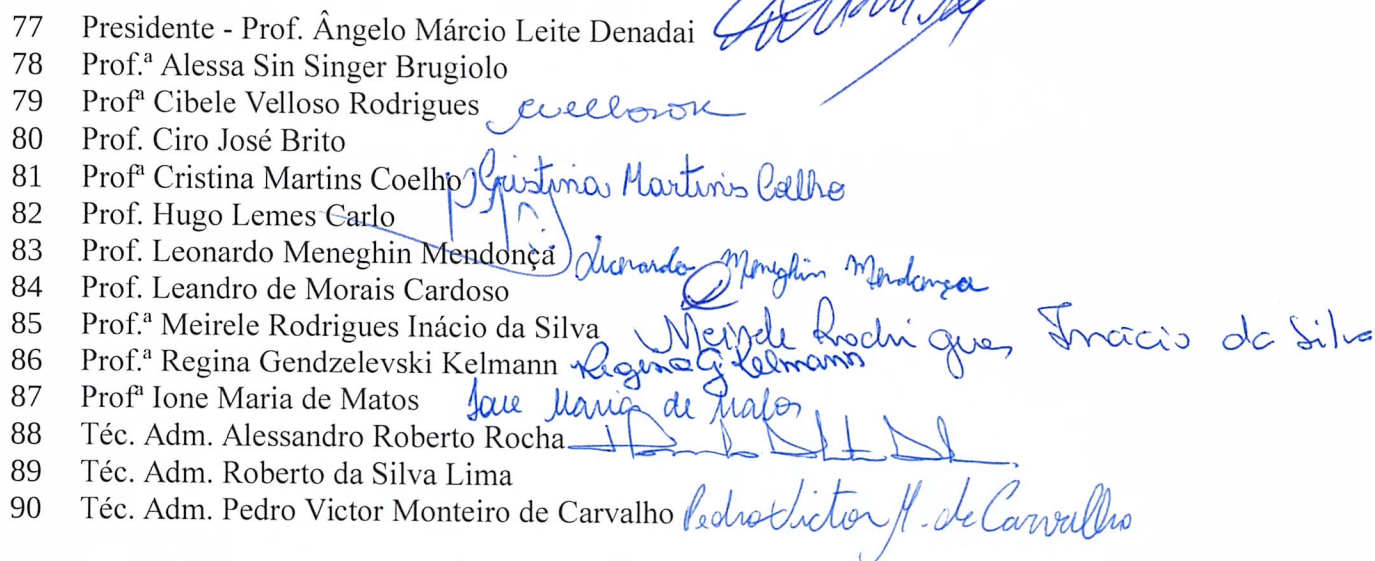 77 Presidente - Prof. Ângelo Márcio Leite Denadai
78 Prof.ª Alessa Sin Singer Brugiolo
79 Profª Cibele Velloso Rodrigues
80 Prof. Ciro José Brito
81 Profª Cristina Martins Coelho Cristina Martins Coelho
82 Prof. Hugo Lemes Carlo
83 Prof. Leonardo Meneghin Mendonça Leonardo Meneghin Mendonça
84 Prof. Leandro de Morais Cardoso
85 Prof.ª Meirele Rodrigues Inácio da Silva Meirele Rodrigues Inácio da Silva
86 Prof.ª Regina Gendzelevski Kelmann Regina G Kelmann
87 Profª Ione Maria de Matos Ione Maria de Matos
88 Téc. Adm. Alessandro Roberto Rocha
89 Téc. Adm. Roberto da Silva Lima
90 Téc. Adm. Pedro Victor Monteiro de Carvalho Pedro Victor M. de Carvalho